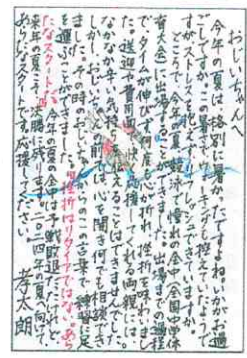 おじいちゃんへ
今年の夏は格別に暑かったですよね。いかがお過
ごしですか。この暑さでウォーキングも控えていたようで
すがストレスを抱えず、リフレッシュできていますか。
ところで、今年の夏、競泳で憧れの全中（全国中学体
育大会）に出場することができました。出場までの過程
で、タイムが伸びず何度も心が折れ、挫折を味わいまし
た。送迎や費用面で応援してくれる両親には、
なかなか辛い気持ちを伝えることはできませんでした。
しかし、おじいちゃんの前では心を開き何でも相談でき
ました。その時のおじいちゃんの言葉で練習に足
を運ぶことができました。「挫折はリタイアではない。あら
たなスタートだ。」今年の夏の全中は予戦敗退だったけれど、
来年の夏こそ決勝に残ります。二〇二四年の夏に向けて、
あらたなスタートです。応援してください。
孝太朗